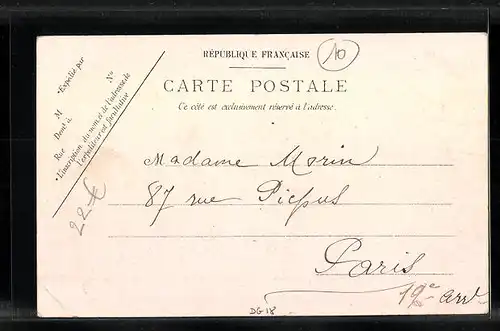 RÉPUBLIQUE FRANÇAISE
10
CARTE POSTALE
Ce côté est exclusivement réservé à l'adresse.
Expédié par
M
Nº
Demt à
Rue
L'inscription du nom et de l'adresse de
l'expéditeur est facultative
22 €
Madame Morin
87 rue Picpus
Paris
arrt
DG-18